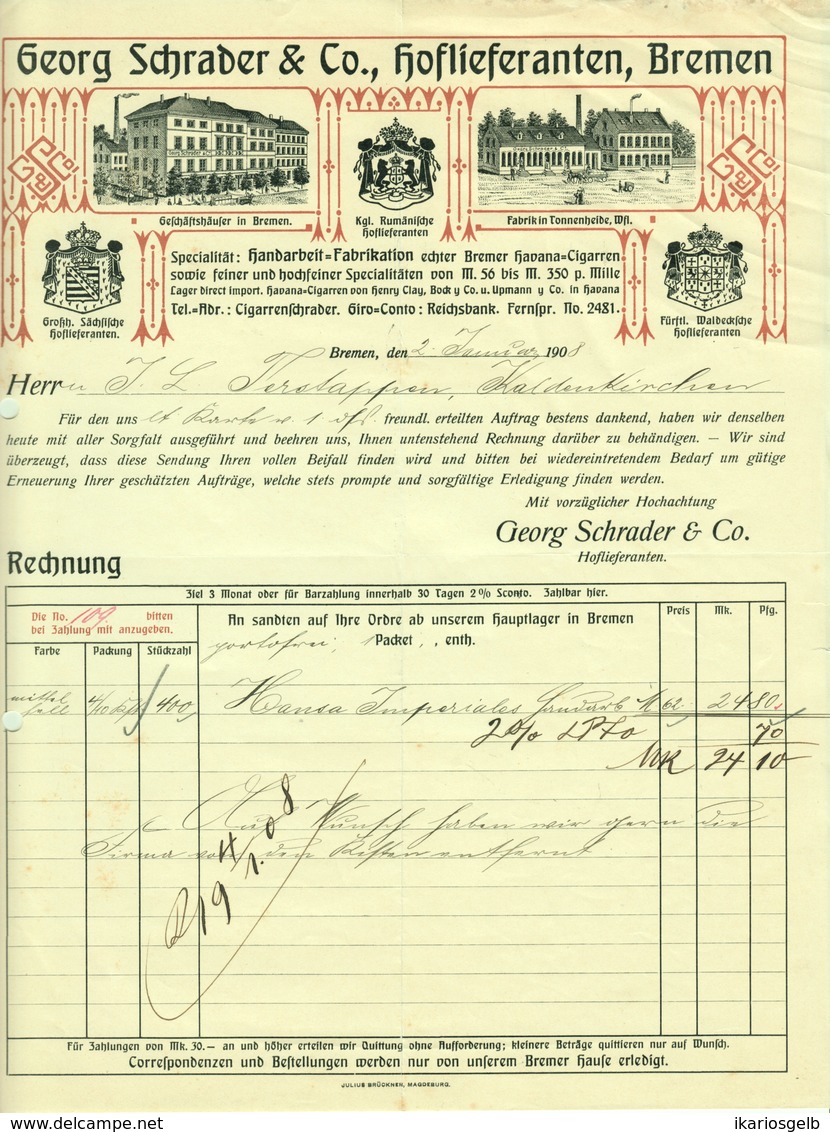 Georg Schrader & Co., Hoflieferanten, Bremen
G S & Co.
Georg Schrader & Co.
Georg Schrader & Co.
G S & Co.
Geschäftshäuser in Bremen.
Kgl. Rumänische
Hoflieferanten
Fabrik in Tonnenheide, Wfl.
Großh. Sächsische
Hoflieferanten.
Specialität: Handarbeit=Fabrikation echter Bremer Havana=Cigarren
sowie feiner und hochfeiner Specialitäten von M. 56 bis M. 350 p. Mille
Lager direct import. Havana=Cigarren von Henry Clay, Bock y Co. u. Upmann y Co. in Havana
Tel.=Adr.: Cigarrenschrader. Giro=Conto: Reichsbank. Fernspr. No. 2481.
Fürstl. Waldecksche
Hoflieferanten
Bremen, den 2. Januar 1908
Herrn J. L. Terstappen, Kaldenkirchen
Für den uns lt Karte v. 1. dfs. freundl. erteilten Auftrag bestens dankend, haben wir denselben
heute mit aller Sorgfalt ausgeführt und beehren uns, Ihnen untenstehend Rechnung darüber zu behändigen. — Wir sind
überzeugt, dass diese Sendung Ihren vollen Beifall finden wird und bitten bei wiedereintretendem Bedarf um gütige
Erneuerung Ihrer geschätzten Aufträge, welche stets prompte und sorgfältige Erledigung finden werden.
Mit vorzüglicher Hochachtung
Georg Schrader & Co.
Hoflieferanten.
Rechnung
Ziel 3 Monat oder für Barzahlung innerhalb 30 Tagen 2% Sconto. Zahlbar hier.
Die No. 109. bitten
bei Zahlung mit anzugeben.
An sandten auf Ihre Ordre ab unserem Hauptlager in Bremen
Preis Mk. Pfg.
portofrei, 1 Packet, , enth.
Farbe Packung Stückzahl
mittel
fell 4/10 Kist 400 Hansa Imperiales Handarb M 62.- 24 80
2% 70
Mk 24 10
Auf Wunsch haben wir gern die
Firma von den Kisten entfernt
19/1.08
Für Zahlungen von Mk. 30.— an und höher erteilen wir Quittung ohne Aufforderung; kleinere Beträge quittieren nur auf Wunsch.
Correspondenzen und Bestellungen werden nur von unserem Bremer Hause erledigt.
JULIUS BRÜCKNER, MAGDEBURG.
www.delcampe.net
ikariosgelb